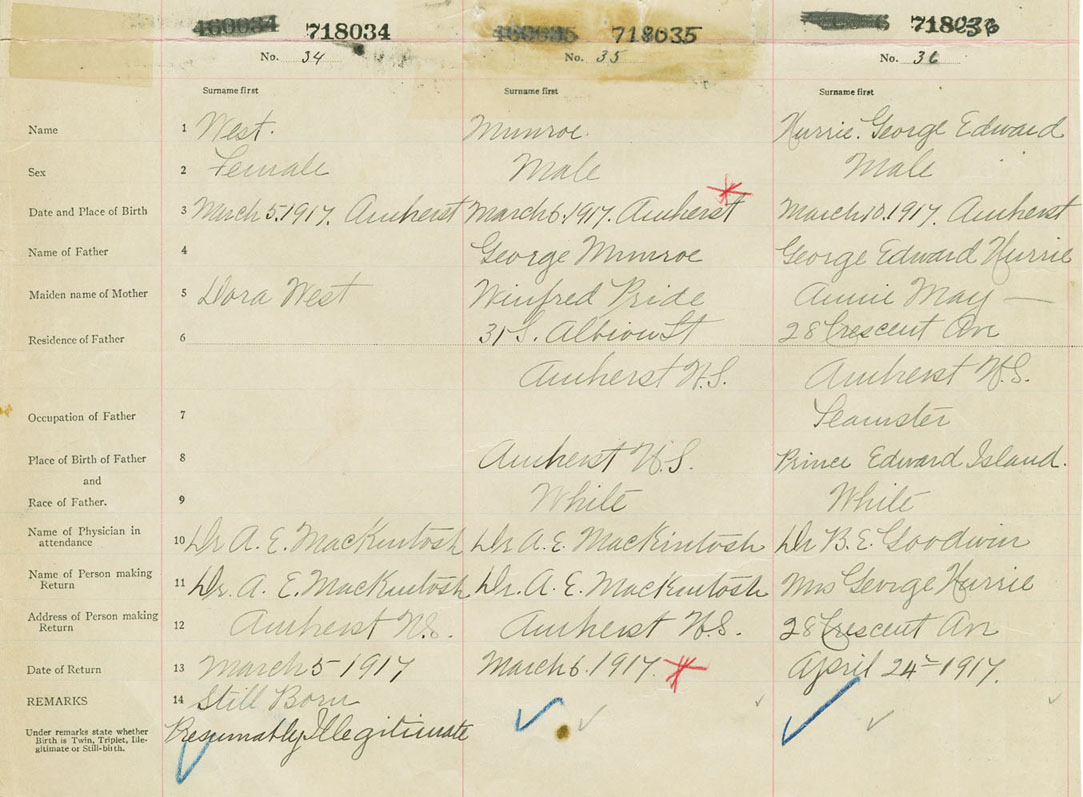 718034 718035 718036
No. 34 No. 35 No. 36
Surname first Surname first Surname first
Name 1 West. Munroe. Hurrie. George Edward
Sex 2 Female Male Male
Date and Place of Birth 3 March 5. 1917. Amherst March 6. 1917. Amherst March 10. 1917. Amherst
Name of Father 4 George Munroe George Edward Hurrie
Maiden name of Mother 5 Dora West Winfred Pride Annie May —
Residence of Father 6 31 S. Albion St 28 Crescent Av
Amherst N.S. Amherst N.S.
Occupation of Father 7 Teamster
Place of Birth of Father 8 Amherst N.S. Prince Edward Island.
and
Race of Father. 9 White White
Name of Physician in
attendance 10 Dr A. E. MacKintosh Dr A. E. MacKintosh Dr B. E. Goodwin
Name of Person making
Return 11 Dr. A. E. MacKintosh Dr. A. E. MacKintosh Mrs George Hurrie
Address of Person making
Return 12 Amherst N.S. Amherst N.S. 28 Crescent Av
Date of Return 13 March 5 1917 March 6. 1917. April 24 1917.
REMARKS 14 Still Born
Under remarks state whether
Birth is Twin, Triplet, Ille-
gitimate or Still-birth. Presumably Illegitimate